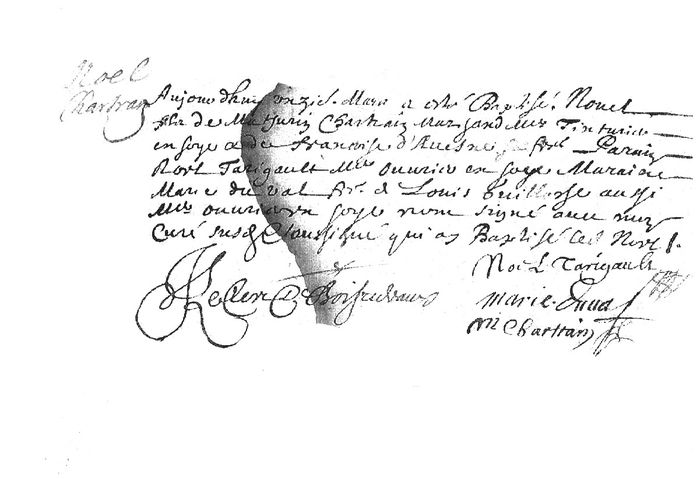 Noel
Chartrain
Aujourdhuy onzie. Mars a esté Baptisé. Nouel
fils de Mathurin Chartrain Marchand Mre Tinturier
en soye & de Francoise d'Avesne sa fme Parain
Noel Tarigault Mre ouvrier en soye Maraine
Marie du val fe. de Louis aussi
Mre ouvrier en soye signé avec nous
Curé soussigné qui a Baptisé led Noel.
Noel Tarigault
Marie. Duval
M Chartrain